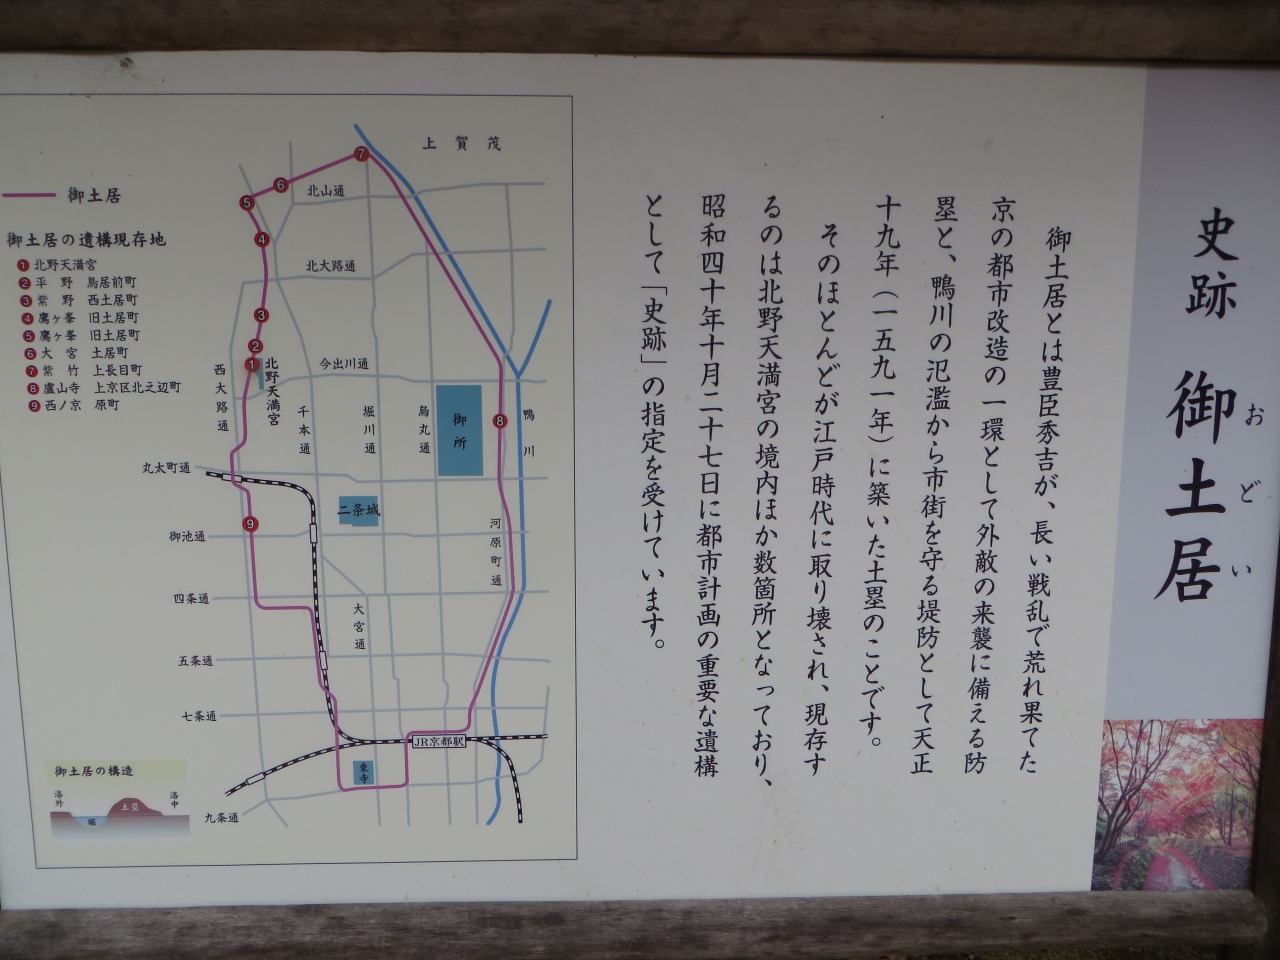 史跡 御土居
おどい
御土居とは豊臣秀吉が、長い戦乱で荒れ果てた
京の都市改造の一環として外敵の来襲に備える防
塁と、鴨川の氾濫から市街を守る堤防として天正
十九年（一五九一年）に築いた土塁のことです。
そのほとんどが江戸時代に取り壊され、現存す
るのは北野天満宮の境内ほか数箇所となっており、
昭和四十年十月二十七日に都市計画の重要な遺構
として「史跡」の指定を受けています。
御土居
御土居の遺構現存地
1 北野天満宮
2 平野 鳥居前町
3 紫野 西土居町
4 鷹ヶ峯 旧土居町
5 鷹ヶ峯 旧土居町
6 大宮 土居町
7 紫竹 上長目町
8 盧山寺 上京区北之辺町
9 西ノ京 原町
上賀茂
7
6
5
北山通
4
北大路通
3
2
1
北野天満宮
今出川通
西大路通
千本通
堀川通
烏丸通
御所
8
鴨川
丸太町通
二条城
9
河原町通
御池通
四条通
大宮通
五条通
七条通
JR京都駅
東寺
九条通
御土居の構造
洛外
土塁
洛中
堀